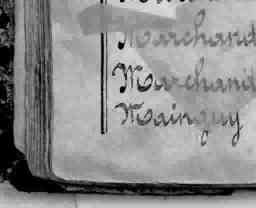 Marchand
Marchand
Mainguy